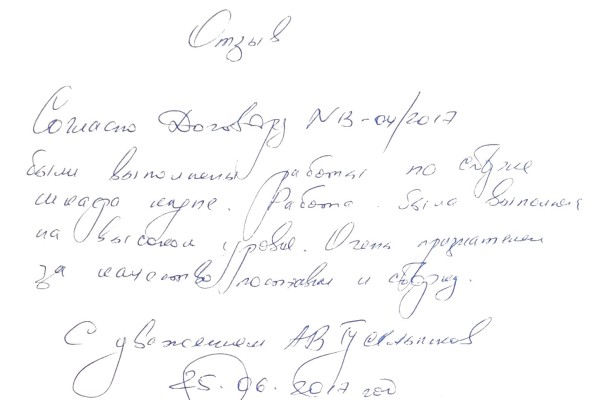 Отзыв
Согласно Договору NВ-04/2017
были выполнены работы по сборке
шкафа купе. Работа была выполнена
на высоком уровне. Очень признателен
за качество поставки и сборку.
С уважением АВ
25.06.2017 год